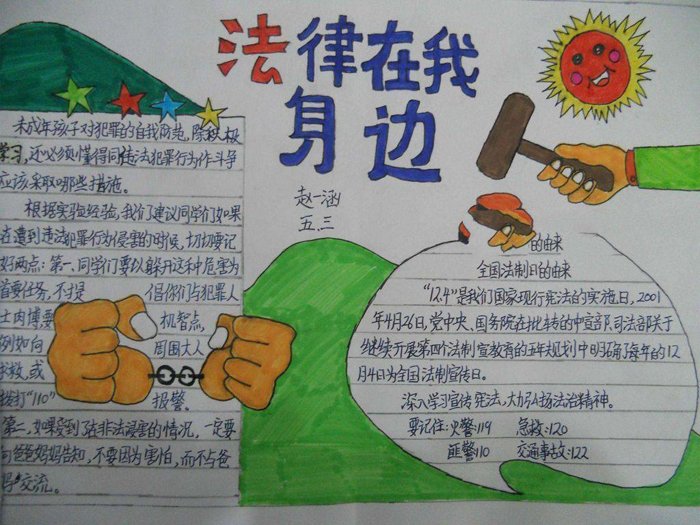 法律在我
身边
赵一涵
五.三
未成年孩子对犯罪的自我防范,除积极
学习,还必须懂得同违法犯罪行为作斗争
应该采取哪些措施。
根据实验经验,我们了建议同学们如果
在遭到违法犯罪行为侵害的时候,切切要记
好两点:第一,同学们要以躲开这种危害为
首要任务,不是 倡你们与犯罪人
士肉博要 机智点,
例如向 周围大人
求救,或
拨打"110" 报警。
第二,如果受到了在非法浸害的情况,一定要
向爸爸妈妈告知,不要因为害怕,而不与爸
妈交流。
的由来
全国法制日的由来
"12.4"是我们国家现行宪法的实施日,2001
年4月26日,党中央、国务院在批转的中宣部、司法部关于
继续开展第四个法制宣教育的五年规划中明确了每年的12
月4日为全国法制宣传日。
深入学习宣传宪法,大力弘扬法治精神。
要记住:火警:119 急救:120
匪警:110 交通事故:122